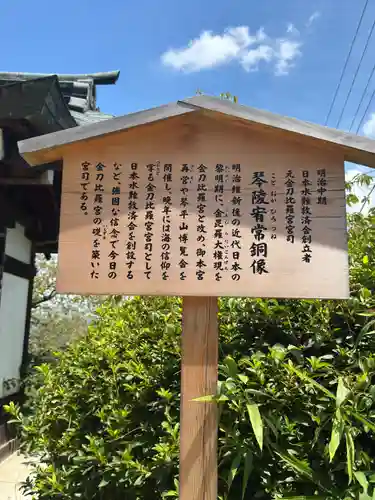 明治中期
日本水難救済会創立者
元金刀比羅宮宮司
ことおかひろつね
琴陵宥常銅像
明治維新後の近代日本の
黎明期に、金毘羅大権現を
金刀比羅宮と改め、御本宮
再営や琴平山博覧会を
開催し、晩年には海の信仰を
する金刀比羅宮宮司として
日本水難救済会を創設する
など、強固な信念で今日の
金刀比羅宮の礎を築いた
宮司である。